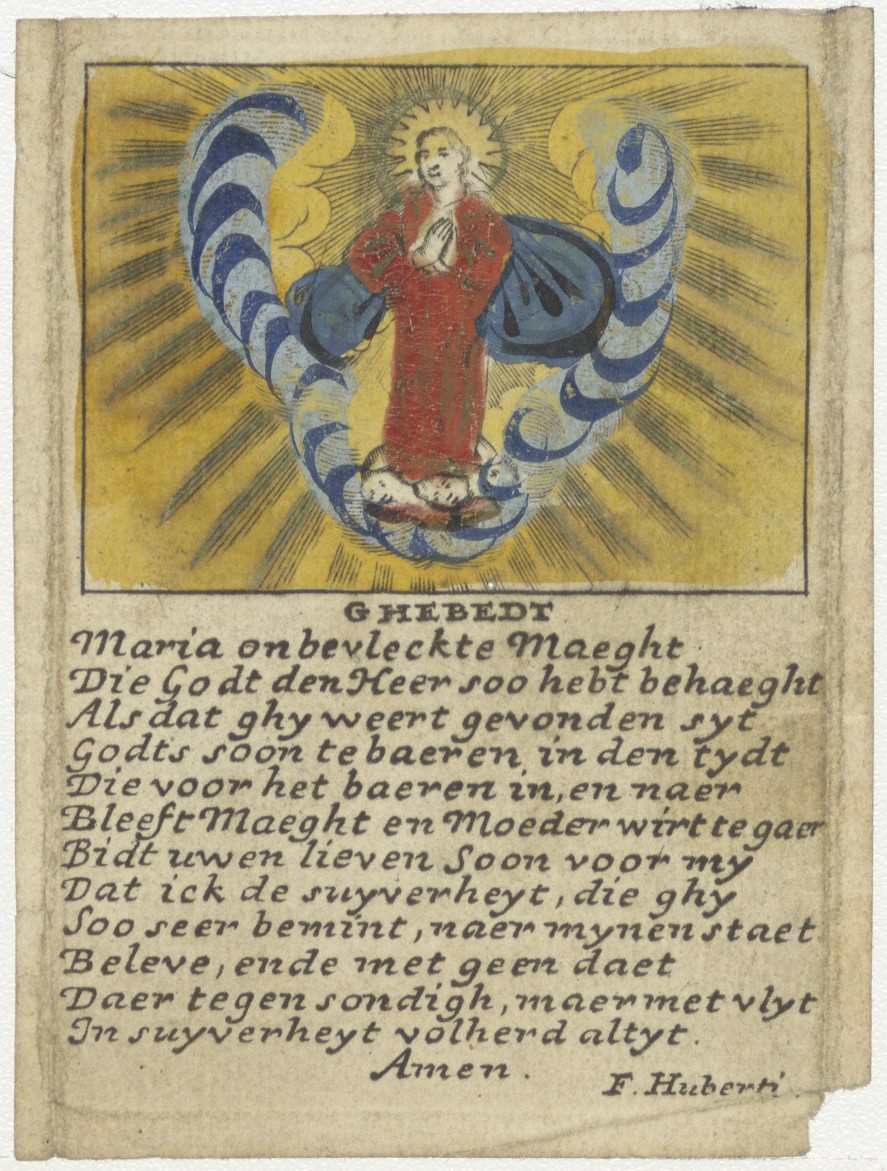 GHEBEDT
Maria onbevleckte Maeght
Die Godt den Heer soo hebt behaeght
Als dat ghy weert gevonden syt
Godts soon te baeren in den tydt
Die voor het baeren in, en naer
Bleeft Maeght en Moeder wirt te gaer
Bidt uwen lieven Soon voor my
Dat ick de suyverheyt, die ghy
Soo seer bemint, naer mynen staet
Beleve, ende met geen daet
Daer tegen sondigh, maer met vlyt
In suyverheyt volherd altyt.
Amen.
F. Huberti